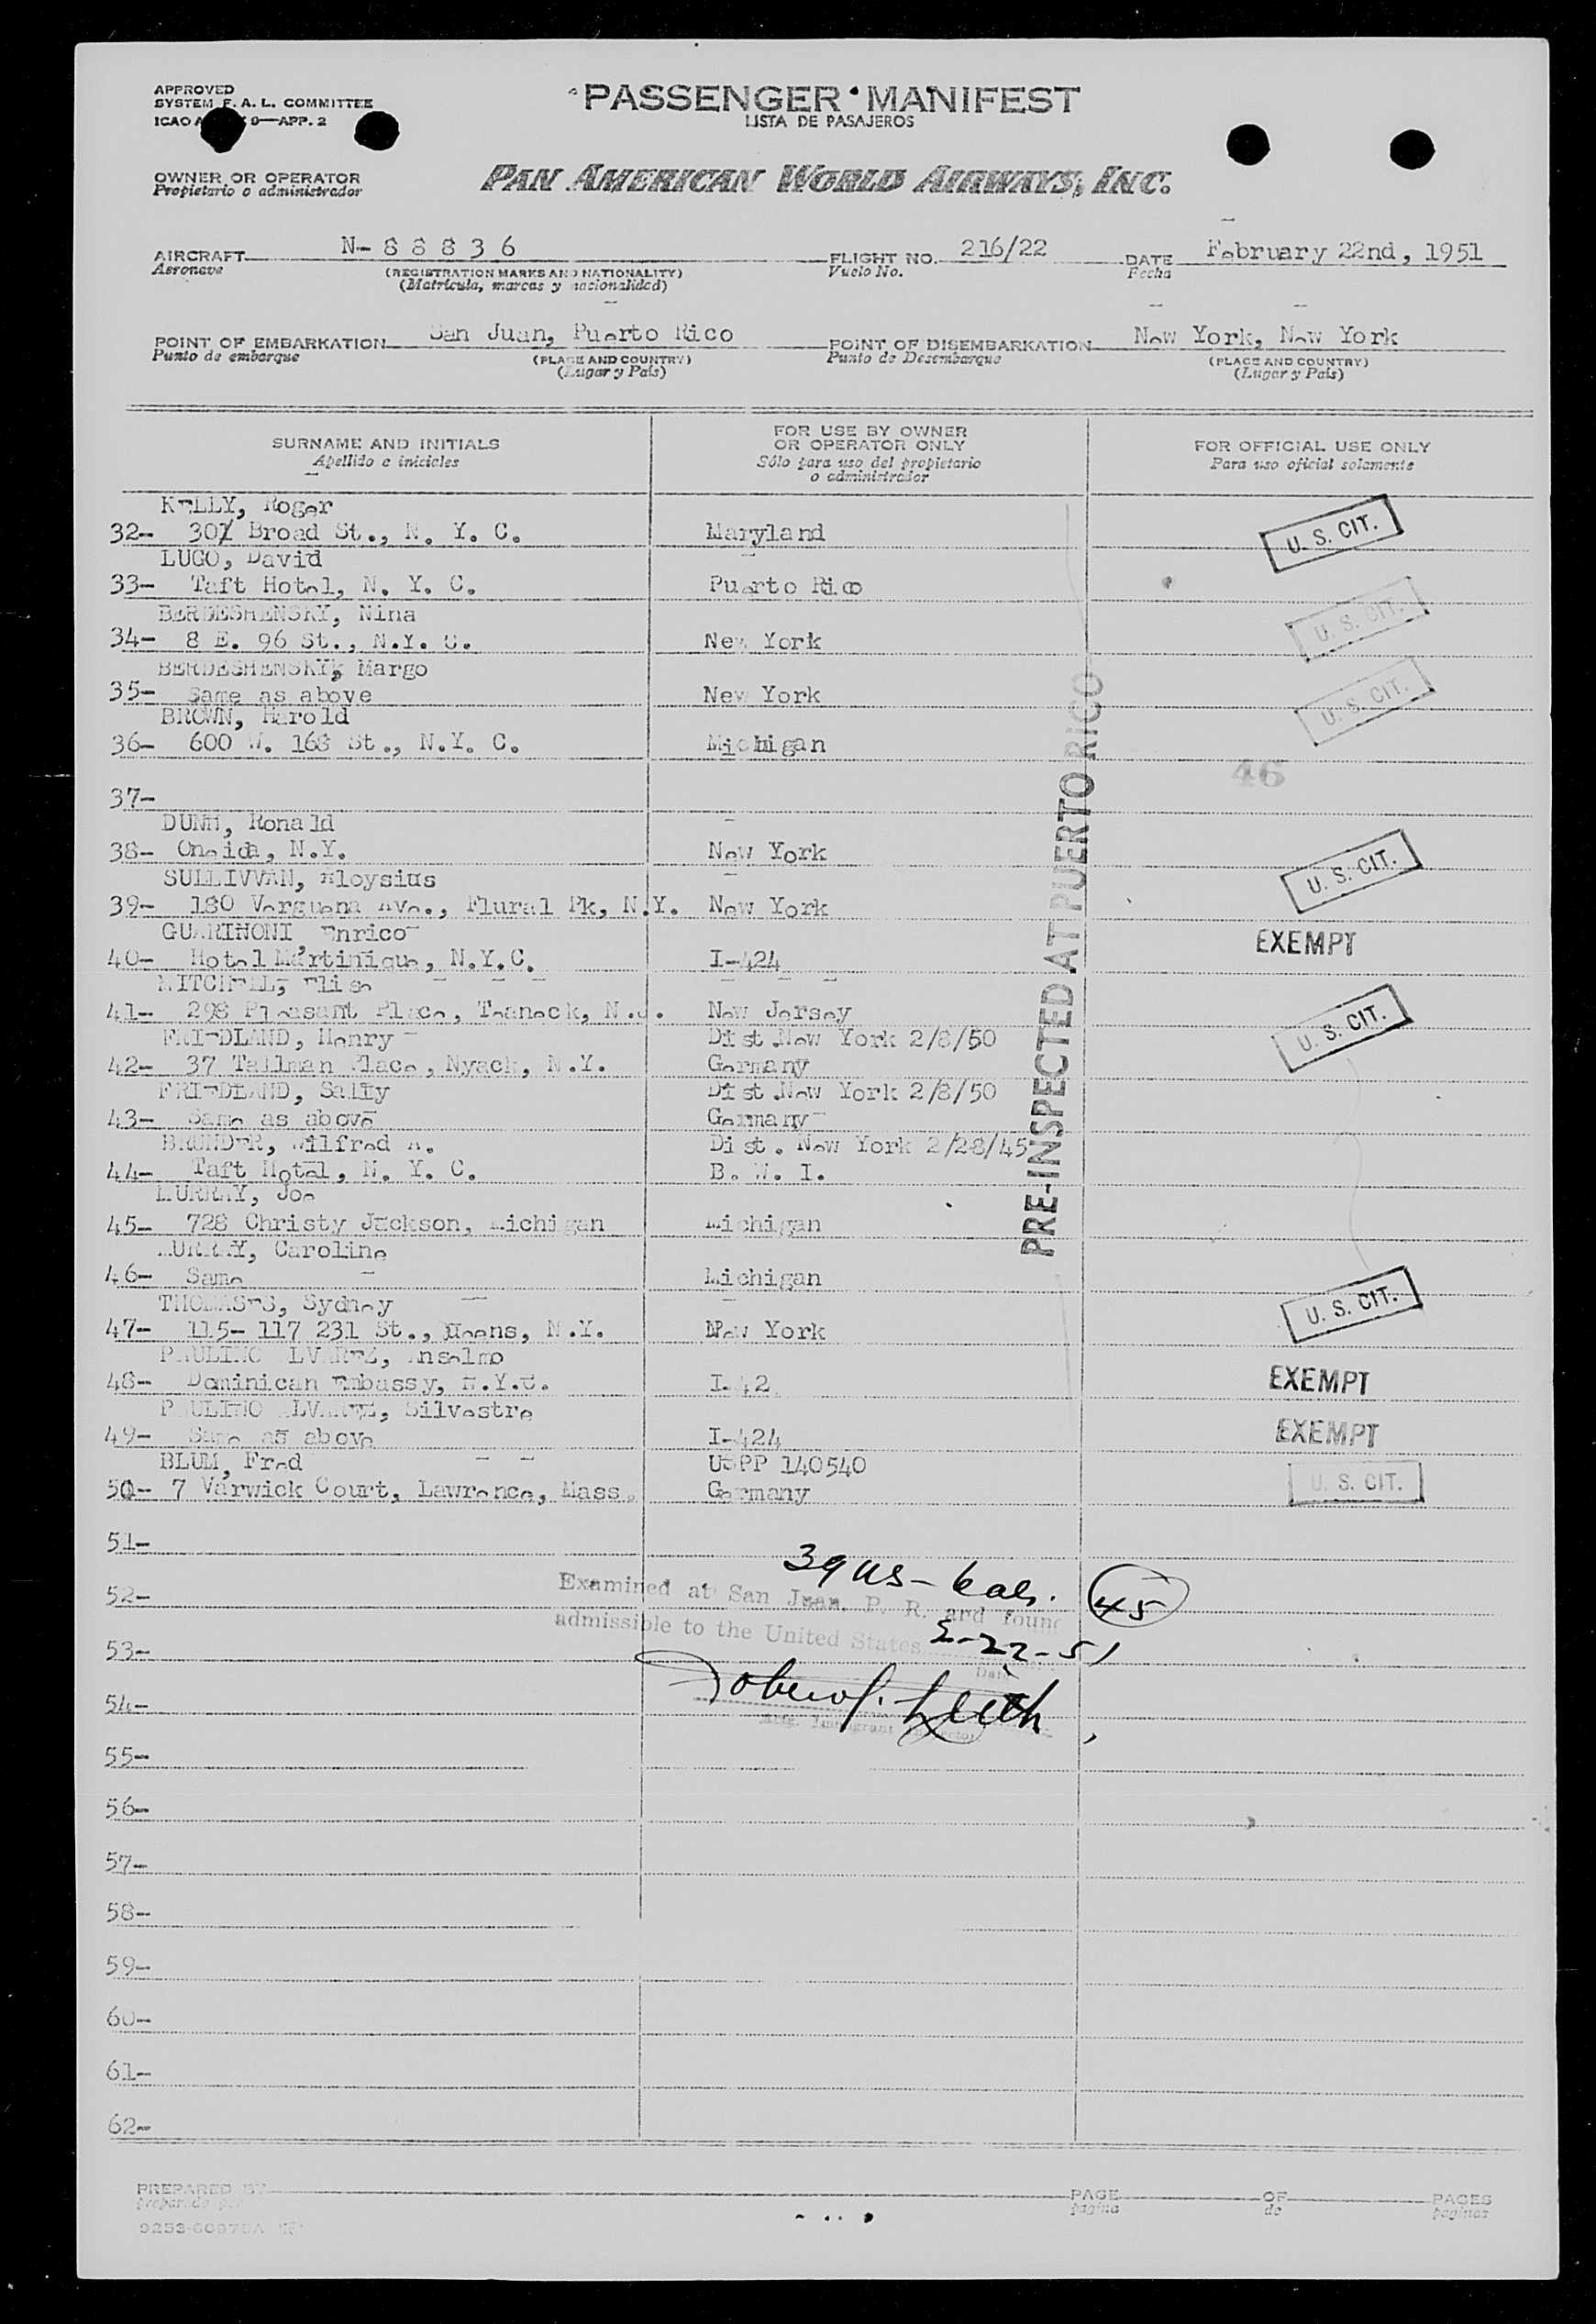 APPROVED
SYSTEM F. A. L. COMMITTEE
ICAO 9—APP. 2
PASSENGER MANIFEST
LISTA DE PASAJEROS
OWNER OR OPERATOR
Propietario o administrador
PAN AMERICAN WORLD AIRWAYS, INC.
AIRCRAFT N- 8 8 8 3 6 FLIGHT NO. 216/22 DATE February 22nd, 1951
Aeronave (REGISTRATION MARKS AND NATIONALITY) Vuelo No. Fecha
(Matrícula, marcas y nacionalidad)
POINT OF EMBARKATION San Juan, Puerto Rico POINT OF DISEMBARKATION New York, New York
Punto de embarque (PLACE AND COUNTRY) Punto de Desembarque (PLACE AND COUNTRY)
(Lugar y País) (Lugar y País)
SURNAME AND INITIALS
Apellido e iniciales
FOR USE BY OWNER
OR OPERATOR ONLY
Sólo para uso del propietario
o administrador
FOR OFFICIAL USE ONLY
Para uso oficial solamente
KELLY, Roger
32- Broad St., N. Y. C. Maryland U. S. CIT.
LUGO, David
33- Taft Hotel, N. Y. C. Puerto Rico
BERDESHENSKY, Nina
34- 8 E. 96 St., N.Y. C. New York U. S. CIT.
BERDESHENSKY, Margo
35- Same as above New York U. S. CIT.
BROWN, Harold
36- 600 W. 168 St., N.Y. C. Michigan
46
37-
DUNN, Ronald
38- Oneida, N.Y. New York U. S. CIT.
SULLIVVAN, Aloysius
39- 180 Verguena Ave., Flural Pk, N.Y. New York
GUARINONI, Enrico
40- Hotel Martinique, N.Y.C. I-424 EXEMPT
MITCHELL, Elise
41- 298 Pleasant Place, Teaneck, N.J. New Jersey U. S. CIT.
FRIEDLAND, Henry Dist.New York 2/8/50
42- 37 Tallman Place, Nyack, N.Y. Germany
FRIEDLAND, Sally Dist.New York 2/8/50
43- Same as above Germany
BRUNDER, Wilfred A. Dist. New York 2/28/45
44- Taft Hotel, N. Y. C. B. W. I.
MURRAY, Joe
45- 728 Christy Jackson, Michigan Michigan
MURRAY, Caroline
46- Same Michigan
THOMASES, Sydney
47- 115- 117 231 St., Queens, N.Y. New York U. S. CIT.
PAULINO ALVAREZ, Anselmo
48- Dominican Embassy, N.Y.C. I-42 EXEMPT
PAULINO ALVAREZ, Silvestre
49- Same as above I-424 EXEMPT
BLUM, Fred USPP 140540
50- 7 Warwick Court, Lawrence, Mass. Germany U. S. CIT.
PRE-INSPECTED AT PUERTO RICO
51-
39 US - 6 als. 45
52- Examined at San Juan, P. R. and found
admissible to the United States 2-22-51
53- Date
54-
Immigrant Inspector
55-
56-
57-
58-
59-
60-
61-
62-
PREPARED BY PAGE OF PAGES
preparado por página de páginas